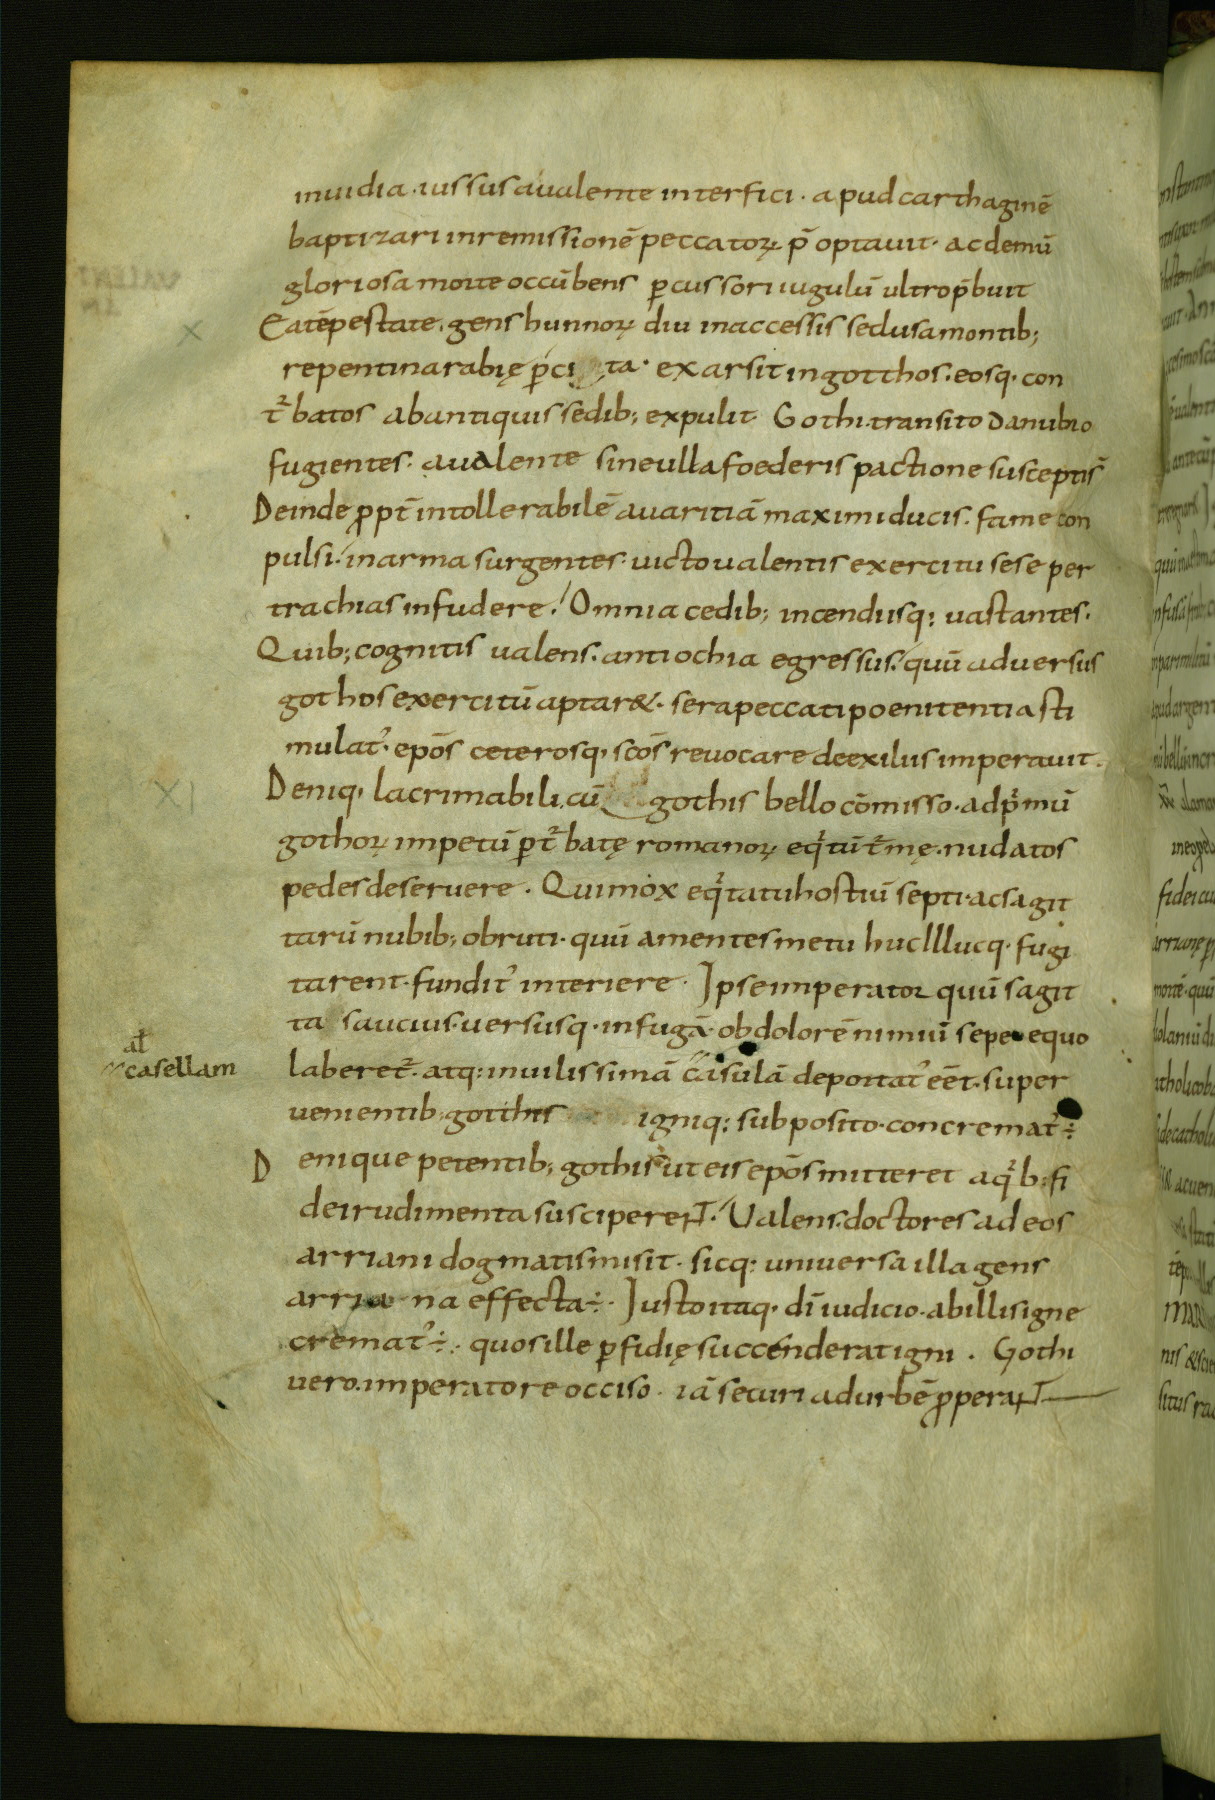 inuidia · iussus aualente interfici · apud carthaginē
baptizari inremissionē peccatorꝝ p̄optauit · ac demū
gloriosa morte occūbens ꝑcussori iugulū ultro p̄buit
Ea tēpestate · gens hunnorꝝ diu inaccessis sedusa montib;
repentina rabię ꝑci ta · exarsit in gotthos · eosq· con
t᷑batos ab antiquis sedib; expulit Gothi · transito danubio
fugientes · aualente sine ulla foederis pactione suscepti s̄
Deinde ꝓpt̄ intollerabilē auaritiā maximi ducis · fame con
pulsi · in arma surgentes · uicto ualentis exercitu sese per
trachias infudere · Omnia cedib; incendiisq; uastantes ·
Quib; cognitis ualens · antiochia egressus · quū aduersus
gothos exercitū aptar& · sera peccati poenitentia sti
mulat᾿ · ep̄os ceterosq· sc̄os reuocare de exiliis imperauit ·
Deniq· lacrimabili · cū gothis bello cōmisso · ad p̍mū
gothorꝝ impetū ꝑt᷑batę romanorꝝ eq̍tū t᷑mę · nudatos
pedes deseruere · Qui mox eq̍tatu hostiū septi · ac sagit
tarū nubib; obruti · quū amentes metu huc llucq· fugi
tarent · fundit᾿ interiere · Ipse imperator quū sagit
ta saucius · uersusq · in fugā · ob dolorē nimiū sepe equo
laberet᷑ · atq; in uilissimā casulā deportat᾿ eēt · super
uenientib; gotthis igniq; subposito · concremat᾿ ÷
al̄
casellam
Denique petentib; gothis ut eis ep̄os mitteret a q̍b; fi
dei rudimenta susciperent · Ualens · doctores ad eos
arriani dogmatis misit · sicq; uniuersa illa gens
arria na effecta ÷ · Iusto itaq· dī iudicio · ab illis igne
cremat᾿ ÷ · quos ille ꝑfidię succenderat igni · Gothi
uero · imperatore occiso · iā securi ad urbē ꝓperant